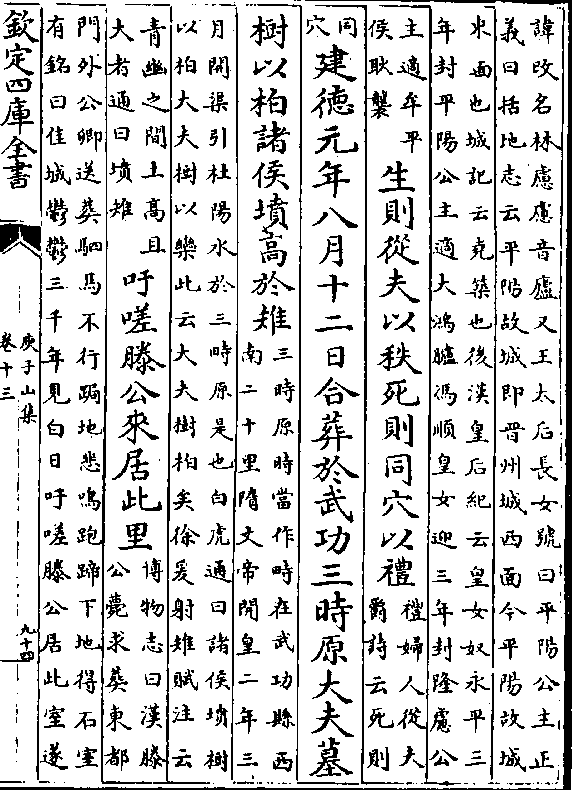 諱改名林慮慮音廬又王太后長女號曰平陽公主正
義曰括地志云平陽故城即晋州城西面今平陽故城
東面也城記云克築也後漢皇后紀云皇女奴永平三
年封平陽公主適大鴻臚馮順皇女迎三年封隆慮公
主適牟平
侯耿襲
生則從夫以秩死則同穴以禮
禮婦人從夫
爵詩云死則
同
穴
建德元年八月十二日合葬於武功三時原大夫墓
樹以柏諸侯墳高於雉
三時原時當作畤在武功縣西
南二十里隋文帝開皇二年三
月開渠引杜陽水於三時原是也白虎通曰諸侯墳樹
以柏大夫樹以欒此云大夫樹柏矣徐爰射雉賦注云
青幽之間土高且
大者通曰墳雉
吁嗟滕公來居此里
博物志曰漢滕
公薨求葬東都
門外公卿送葬駟馬不行跼地悲鳴跑蹄下地得石室
有銘曰佳城鬱鬱三千年見白日吁嗟滕公居此室遂
欽定四庫全書
庾子山集
卷十三
九十四